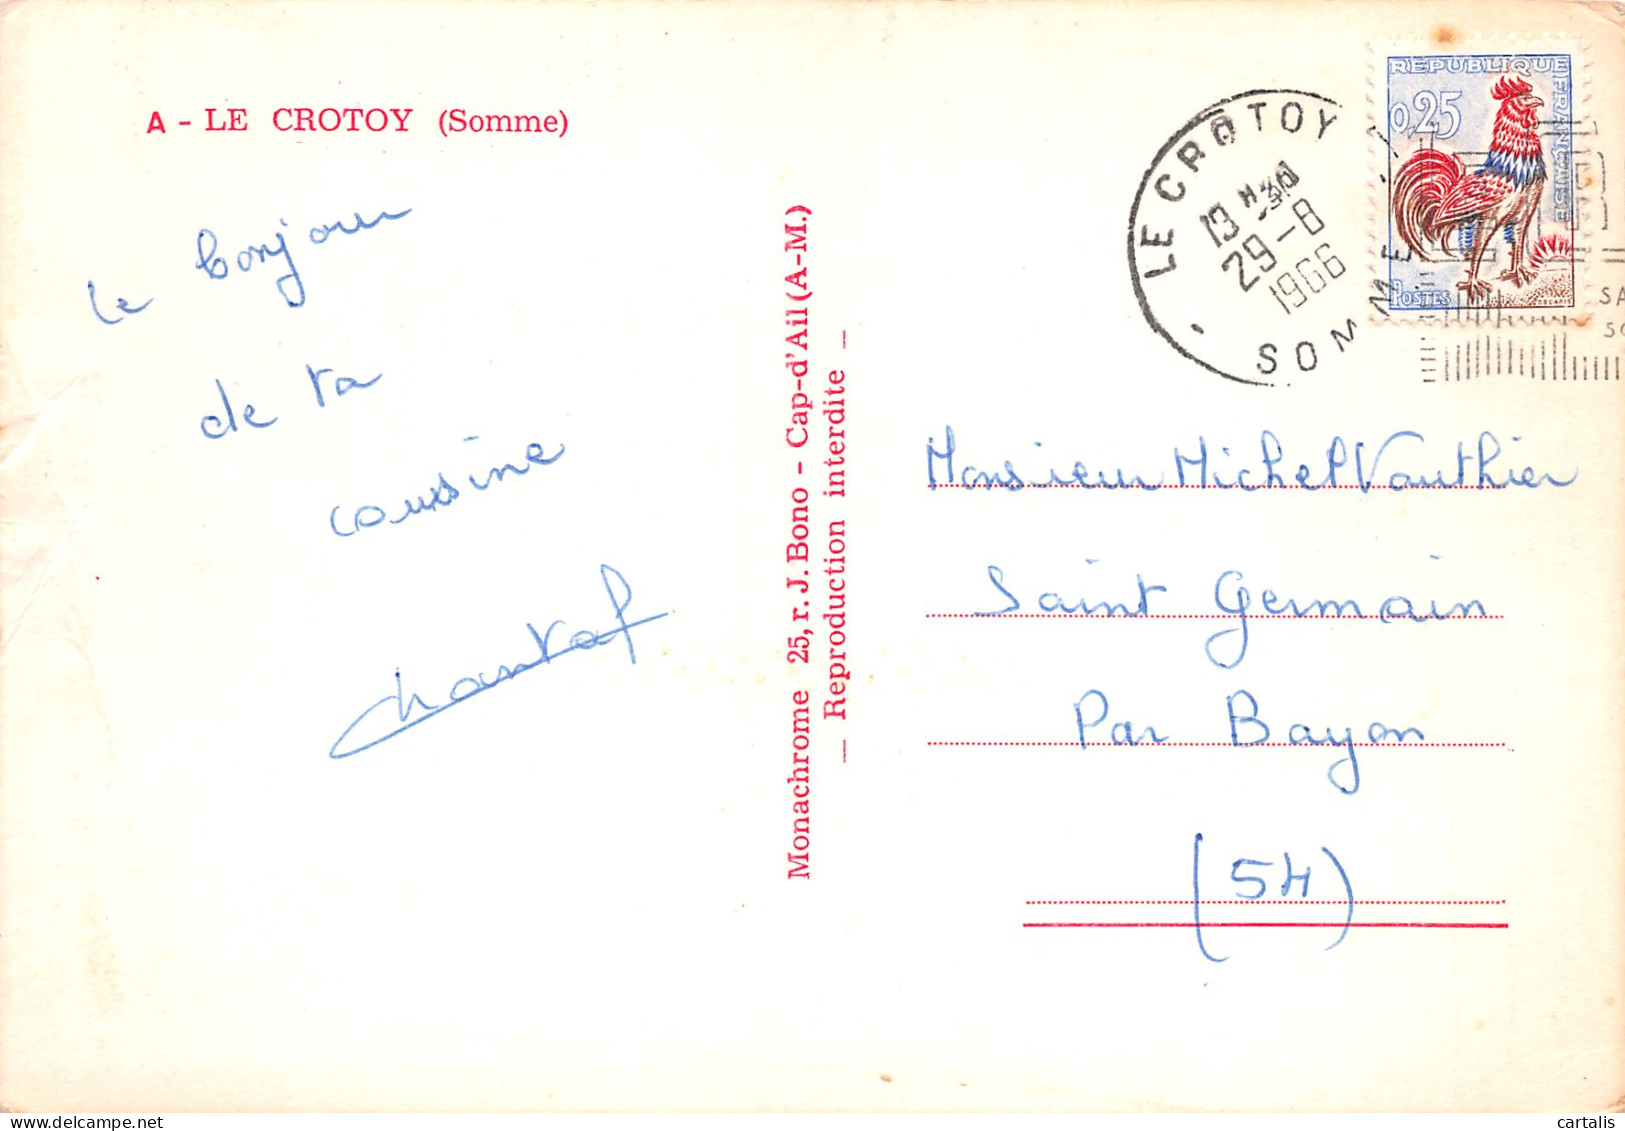 A - LE CROTOY (Somme)
le bonjour
de ta
cousine
Chantal
Monachrome 25, r. J. Bono - Cap-d'Ail (A-M.)
— Reproduction interdite —
LE CROTOY
29-8
1966
SOMME
RÉPUBLIQUE FRANÇAISE
0,25
POSTES
SA
Monsieur Michel Vauthier
Saint Germain
Par Bayon
(54)
cartalis